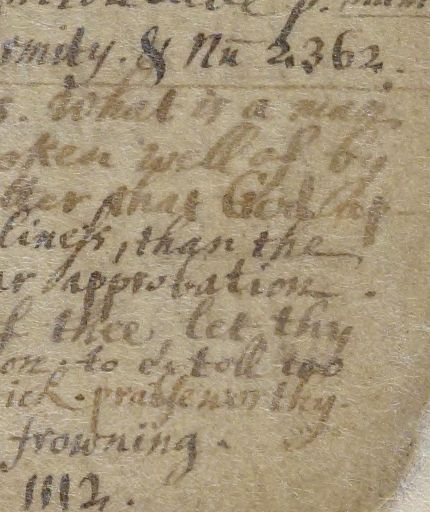 rmity. & Nū 2362.
s. What is a man
oken well of by
tter that God hy
liness, than the
ar approbation.
f thee, let thy
on. to extoll too
ick. praiseworthy.
frowning.
1112.